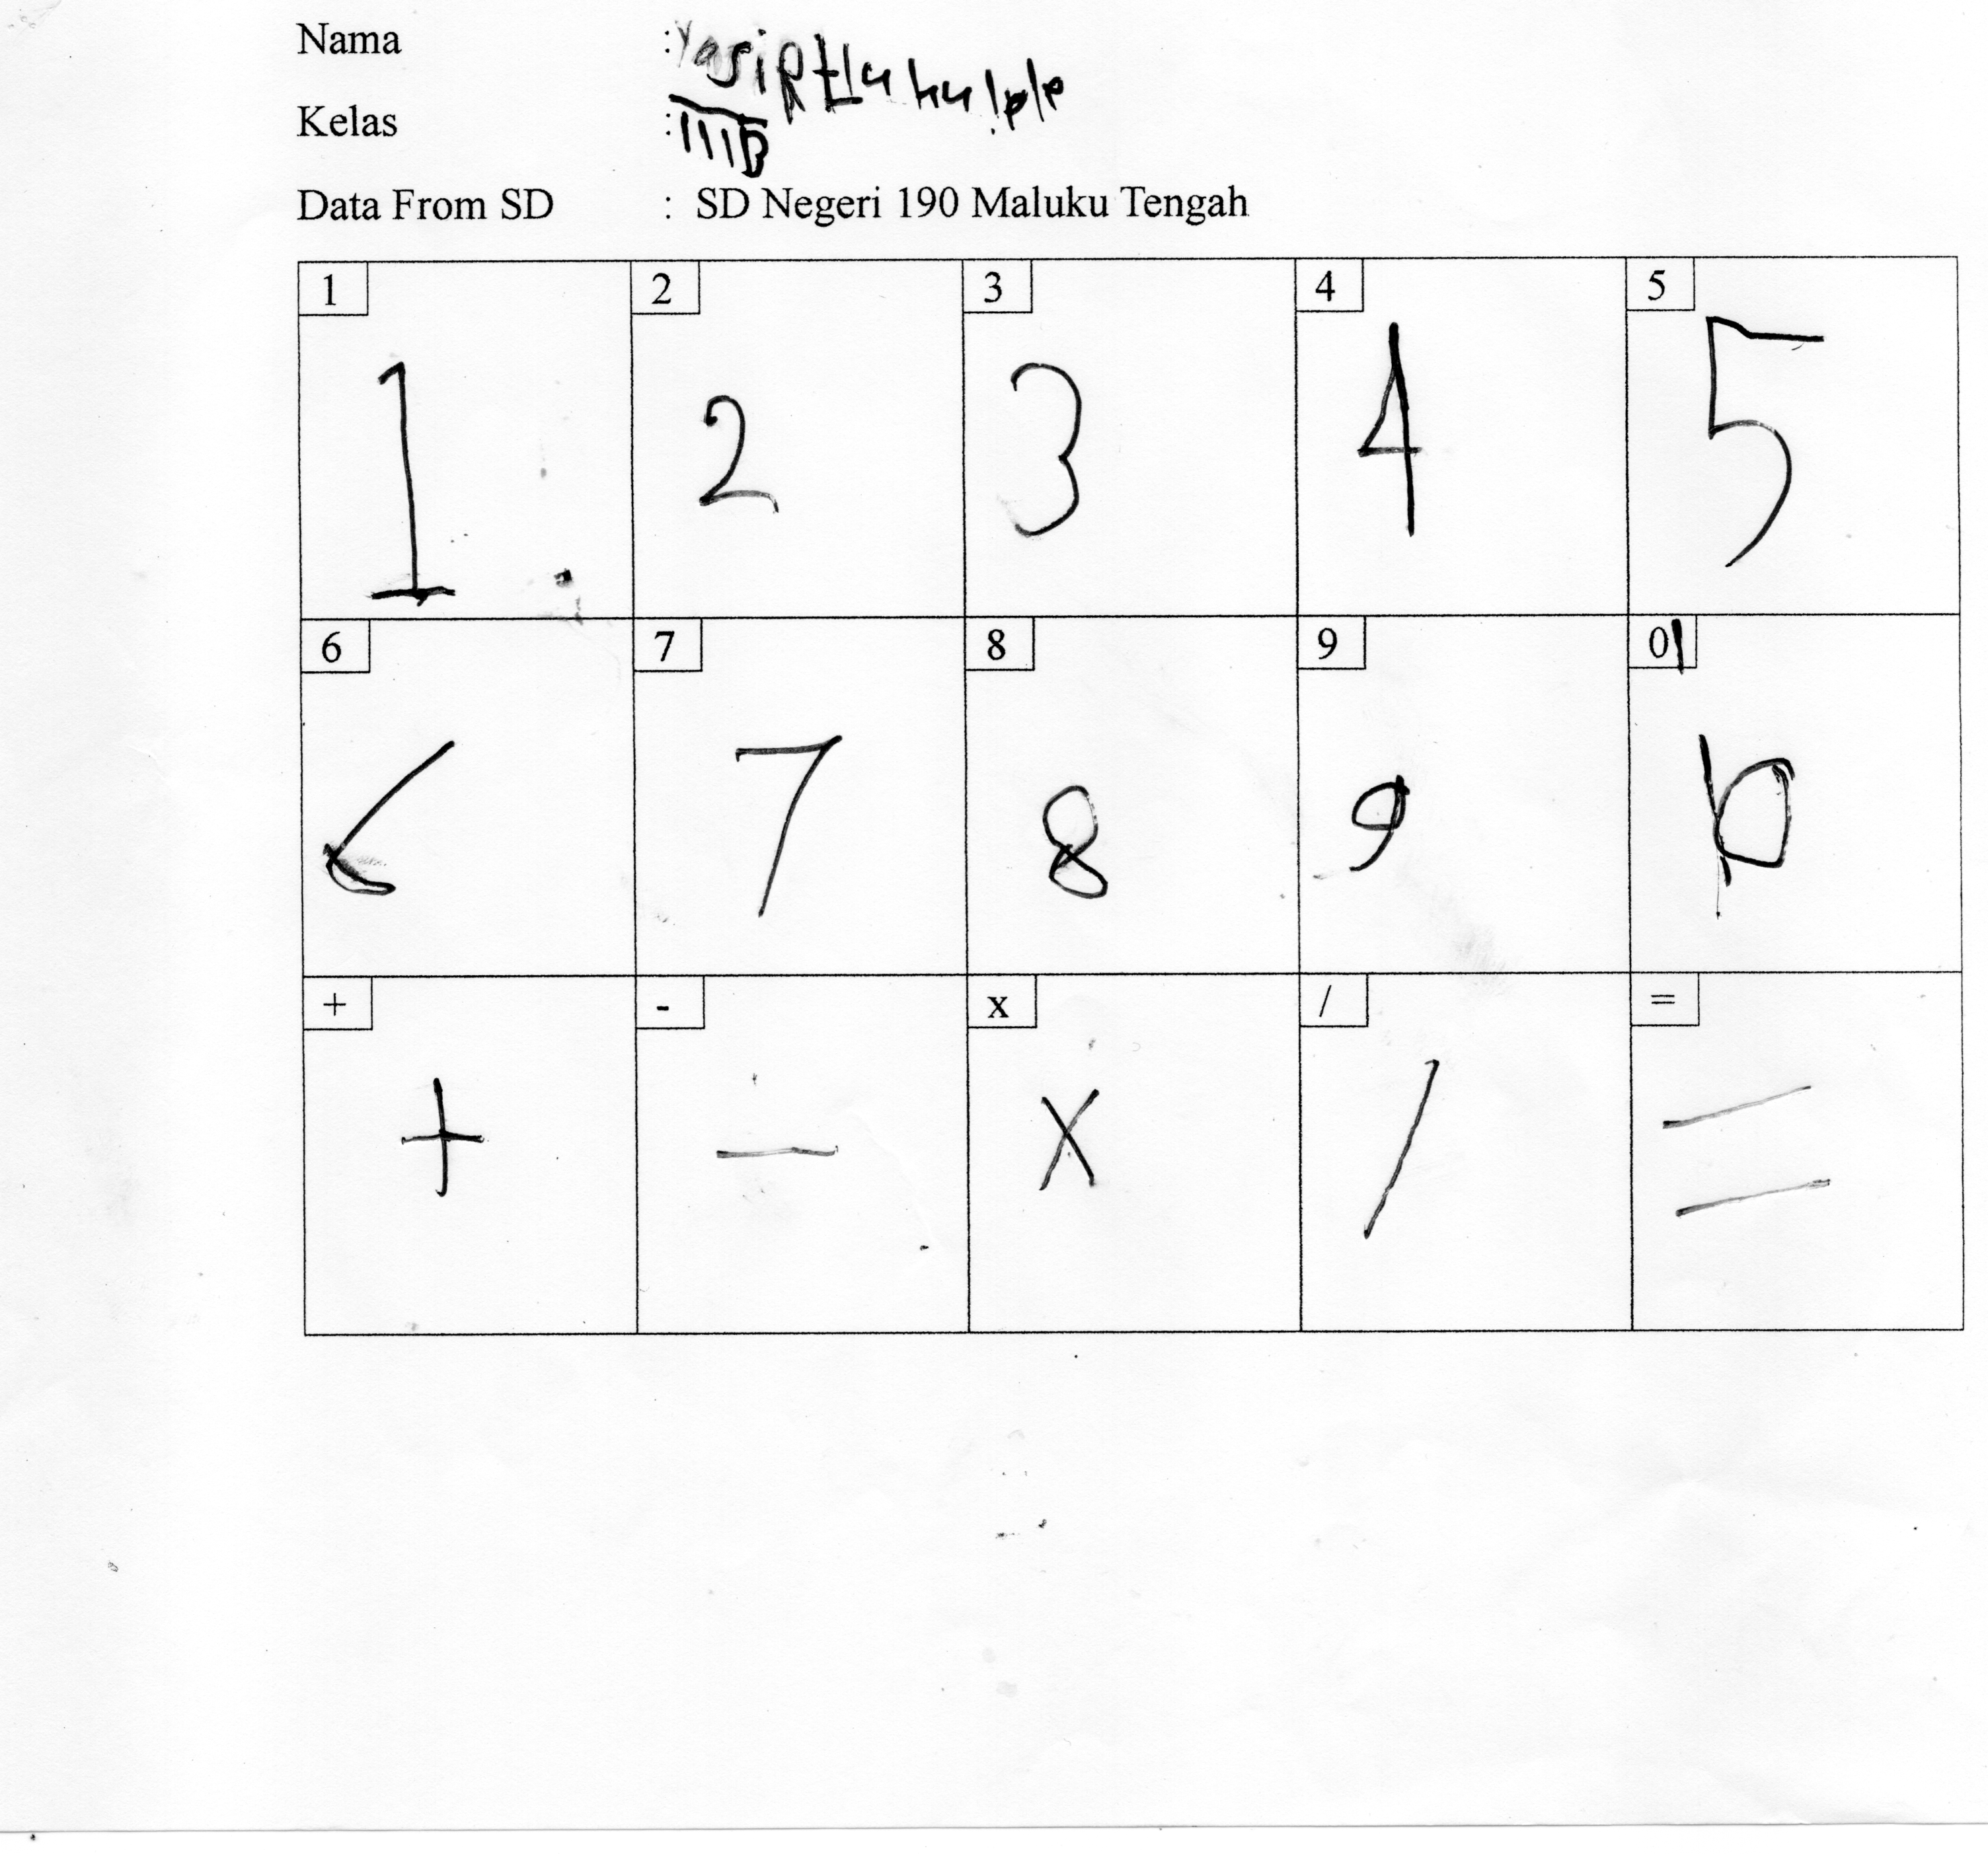 Nama : Yasir
Kelas : IIIB
Data From SD : SD Negeri 190 Maluku Tengah
1 2 3 4 5
1 2 3 4 5
6 7 8 9 0
6 7 8 9
+ - x / =
+ - x / =